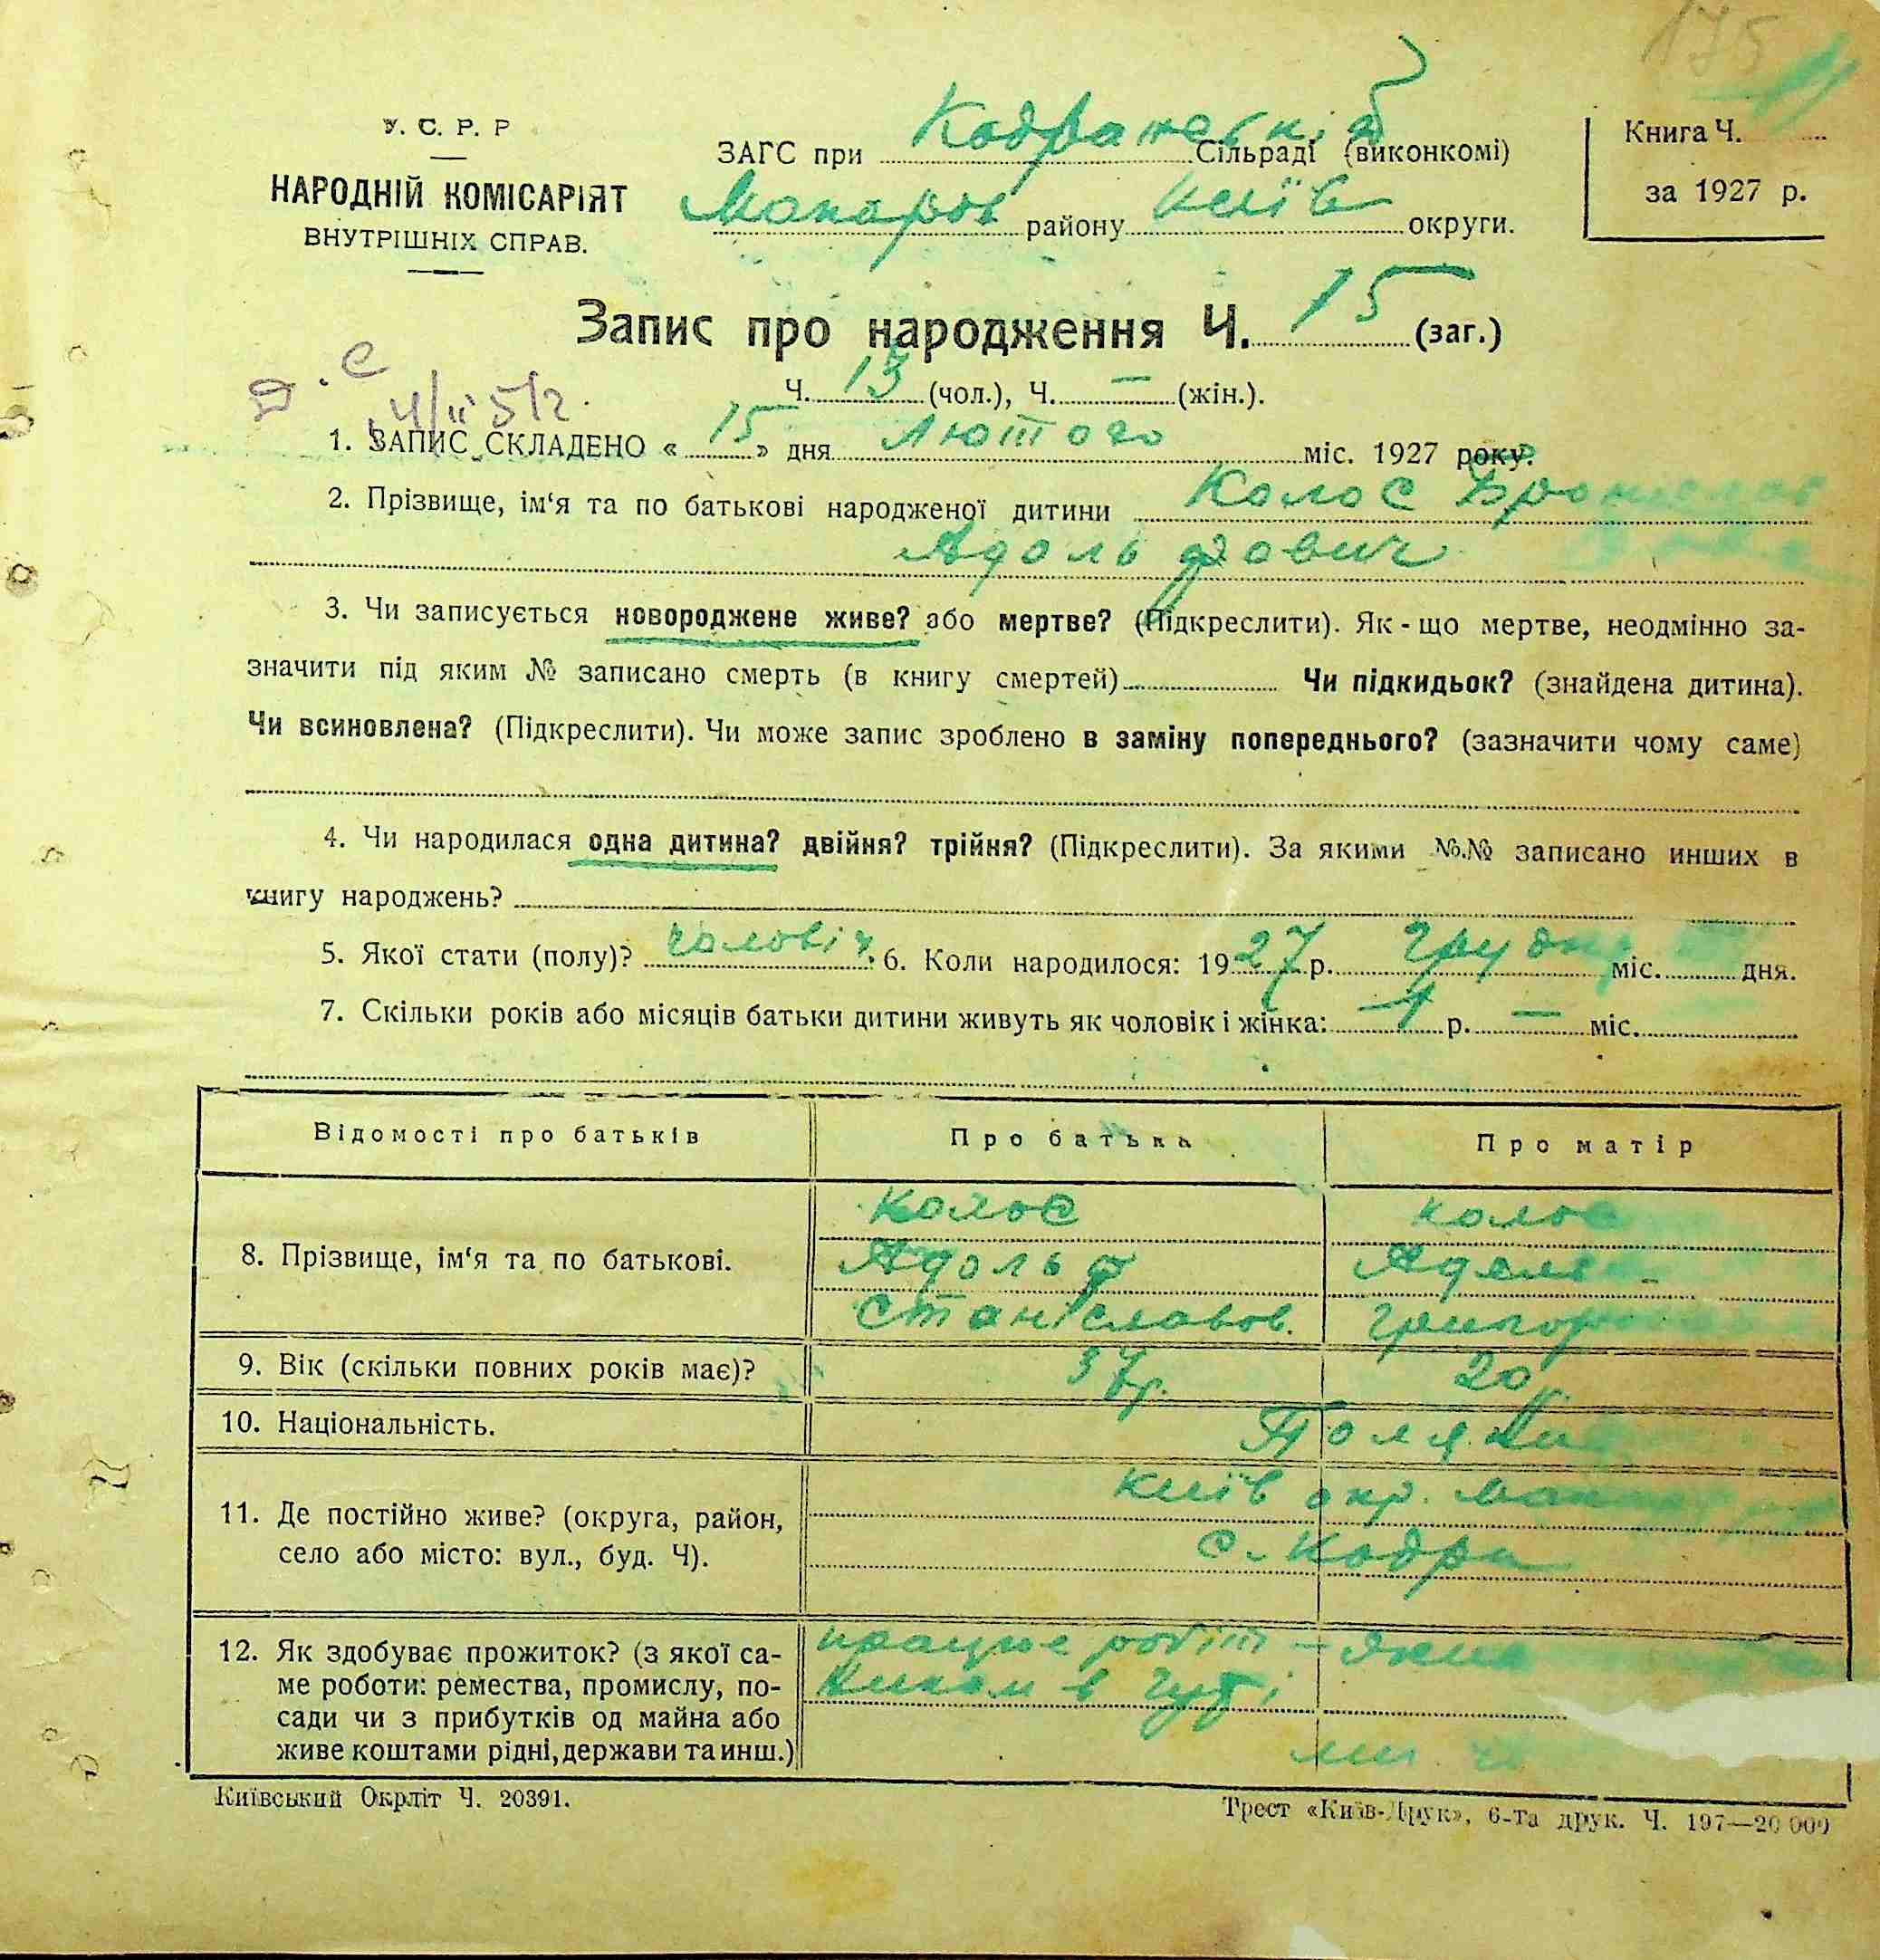 175
У. С. Р. Р
НАРОДНІЙ КОМІСАРІЯТ
ВНУТРІШНІХ СПРАВ.
ЗАГС при Кодранській Сільраді (виконкомі)
Макарів району Київ округи.
Книга Ч.
за 1927 р.
Запис про народження Ч. 15 (заг.)
Ч. 13 (чол.), Ч. — (жін.).
1. ЗАПИС СКЛАДЕНО « 15 » дня Лютого міс. 1927 року.
2. Прізвище, ім'я та по батькові народженої дитини Колос Броніслав
Адольфович
3. Чи записується новороджене живе? або мертве? (Підкреслити). Як-що мертве, неодмінно за-
значити під яким № записано смерть (в книгу смертей) Чи підкидьок? (знайдена дитина).
Чи всиновлена? (Підкреслити). Чи може запис зроблено в заміну попереднього? (зазначити чому саме)
4. Чи народилася одна дитина? двійня? трійня? (Підкреслити). За якими №.№ записано инших в
книгу народжень?
5. Якої стати (полу)? чоловіч. 6. Коли народилося: 1927 р. Грудн міс. дня.
7. Скільки років або місяців батьки дитини живуть як чоловік і жінка: 1 р. — міс.
Відомості про батьків Про батька Про матір
8. Прізвище, ім'я та по батькові.
Колос колос
Адольф Аделя
Станіславов. Григор
9. Вік (скільки повних років має)? 37р. 20р.
10. Національність. Поляки
11. Де постійно живе? (округа, район,
село або місто: вул., буд. Ч).
Київ окр. Мака
с. Кодра
12. Як здобуває прожиток? (з якої са-
ме роботи: ремества, промислу, по-
сади чи з прибутків од майна або
живе коштами рідні, держави та инш.)
працює робіт-
ником в Гуті
Київський Окрліт Ч. 20391.
Трест «Київ-Друк», 6-та друк. Ч. 197—20 000